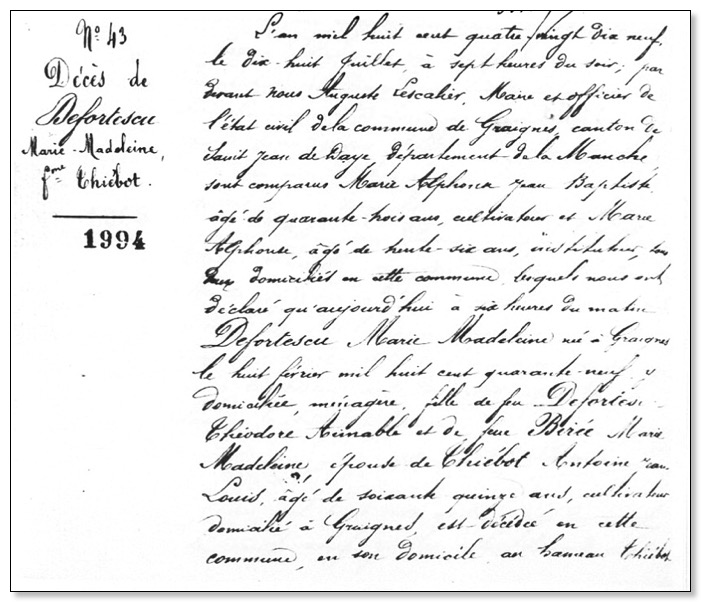 N° 43
Décès de
Defortescu
Marie-Madeleine,
fme Thiébot.
1994
L'an mil huit cent quatre-vingt dix neuf,
le dix-huit Juillet, à sept heures du soir, par
devant nous Auguste Lescalier, Maire et officier de
l'état civil de la commune de Graignes, canton de
Saint Jean de Daye département de la Manche
sont comparus Marie Alphonse Jean Baptiste
âgé de quarante-trois ans, cultivateur et Marie
Alphonse, âgé de trente-six ans, instituteur, tous
deux domiciliés en cette commune, lesquels nous ont
déclaré qu'aujourd'hui à six heures du matin
Defortescu Marie Madeleine née à Graignes
le huit février mil huit cent quarante-neuf, y
domiciliée, ménagère, fille de feu Defortes
Théodore Aimable et de feue Birée Marie
Madeleine épouse de Thiébot Antoine Jean
Louis, âgé de soixante quinze ans, cultivateur
domicilié à Graignes, est décédée en cette
commune, en son domicile au hameau Thiébot